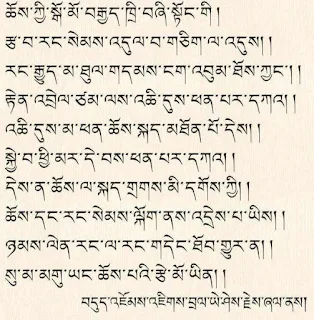 ཆོས་ཀྱི་སྒོ་མོ་བརྒྱད་ཁྲི་བཞི་སྟོང་གི །
རྩ་བ་རང་སེམས་འདུལ་བ་གཅིག་ལ་འདུས། །
རང་རྒྱུད་མ་ཐུལ་གདམས་ངག་འབུམ་ཐོས་ཀྱང་། །
རྟེན་འབྲེལ་ཙམ་ལས་འཆི་དུས་ཕན་པར་དཀའ། །
འཆི་དུས་མ་ཕན་ཆོས་སྐད་མཐོན་པོ་དེས། །
སྐྱེ་བ་ཕྱི་མར་དེ་བས་ཕན་པར་དཀའ། །
དེས་ན་ཆོས་ལ་སྐད་གྲགས་མི་དགོས་ཀྱི། །
ཆོས་དང་རང་སེམས་ལྐོག་ནས་འདྲེས་པ་ཡིས། །
ཉམས་ལེན་རང་ལ་རང་གདེང་ཐོབ་གྱུར་ན། །
སུ་མ་མགུ་ཡང་ཆོས་པའི་རྩེ་མོ་ཡིན། །
བདུད་འཇོམས་འཇིགས་བྲལ་ཡེ་ཤེས་རྡོ་རྗེས་ཞལ་ནས།